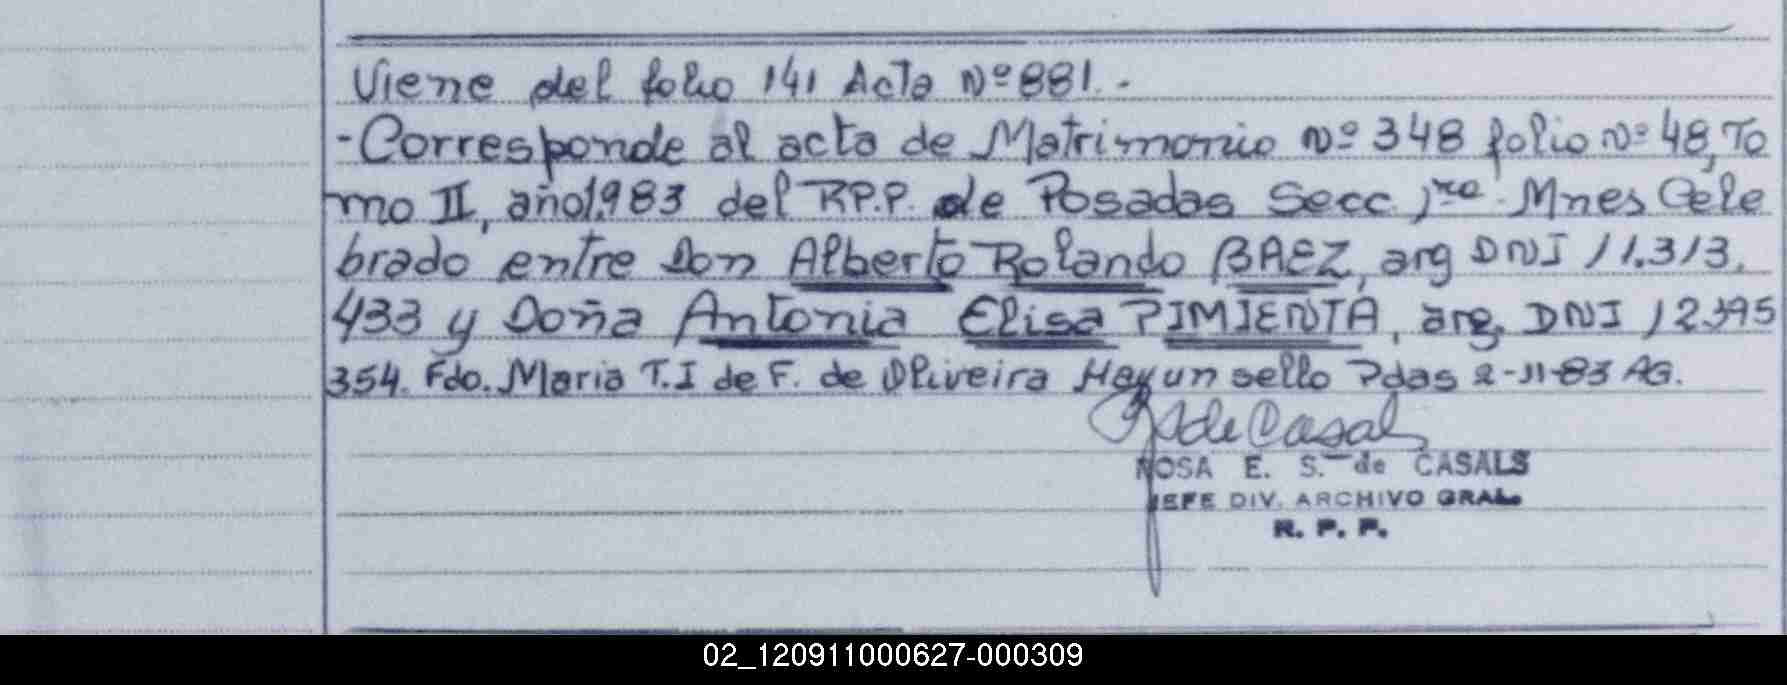 Viene del folio 141 Acta Nº 881.-
-Corresponde al acta de Matrimonio Nº 348 folio Nº 48, To
mo II, año 1.983 del R.P.P. de Posadas Secc 1ra. Mnes Cele
brado entre Don Alberto Rolando BAEZ, arg DNI 11.313.
433 y Doña Antonia Elisa PIMIENTA, arg. DNI 12.395
354. Fdo. Maria T.I de F. de Oliveira Hay un sello Pdas 2-11-83 AG.
RSde Casals
ROSA E. S. de CASALS
JEFE DIV. ARCHIVO GRAL.
R. P. P.
02_120911000627-000309